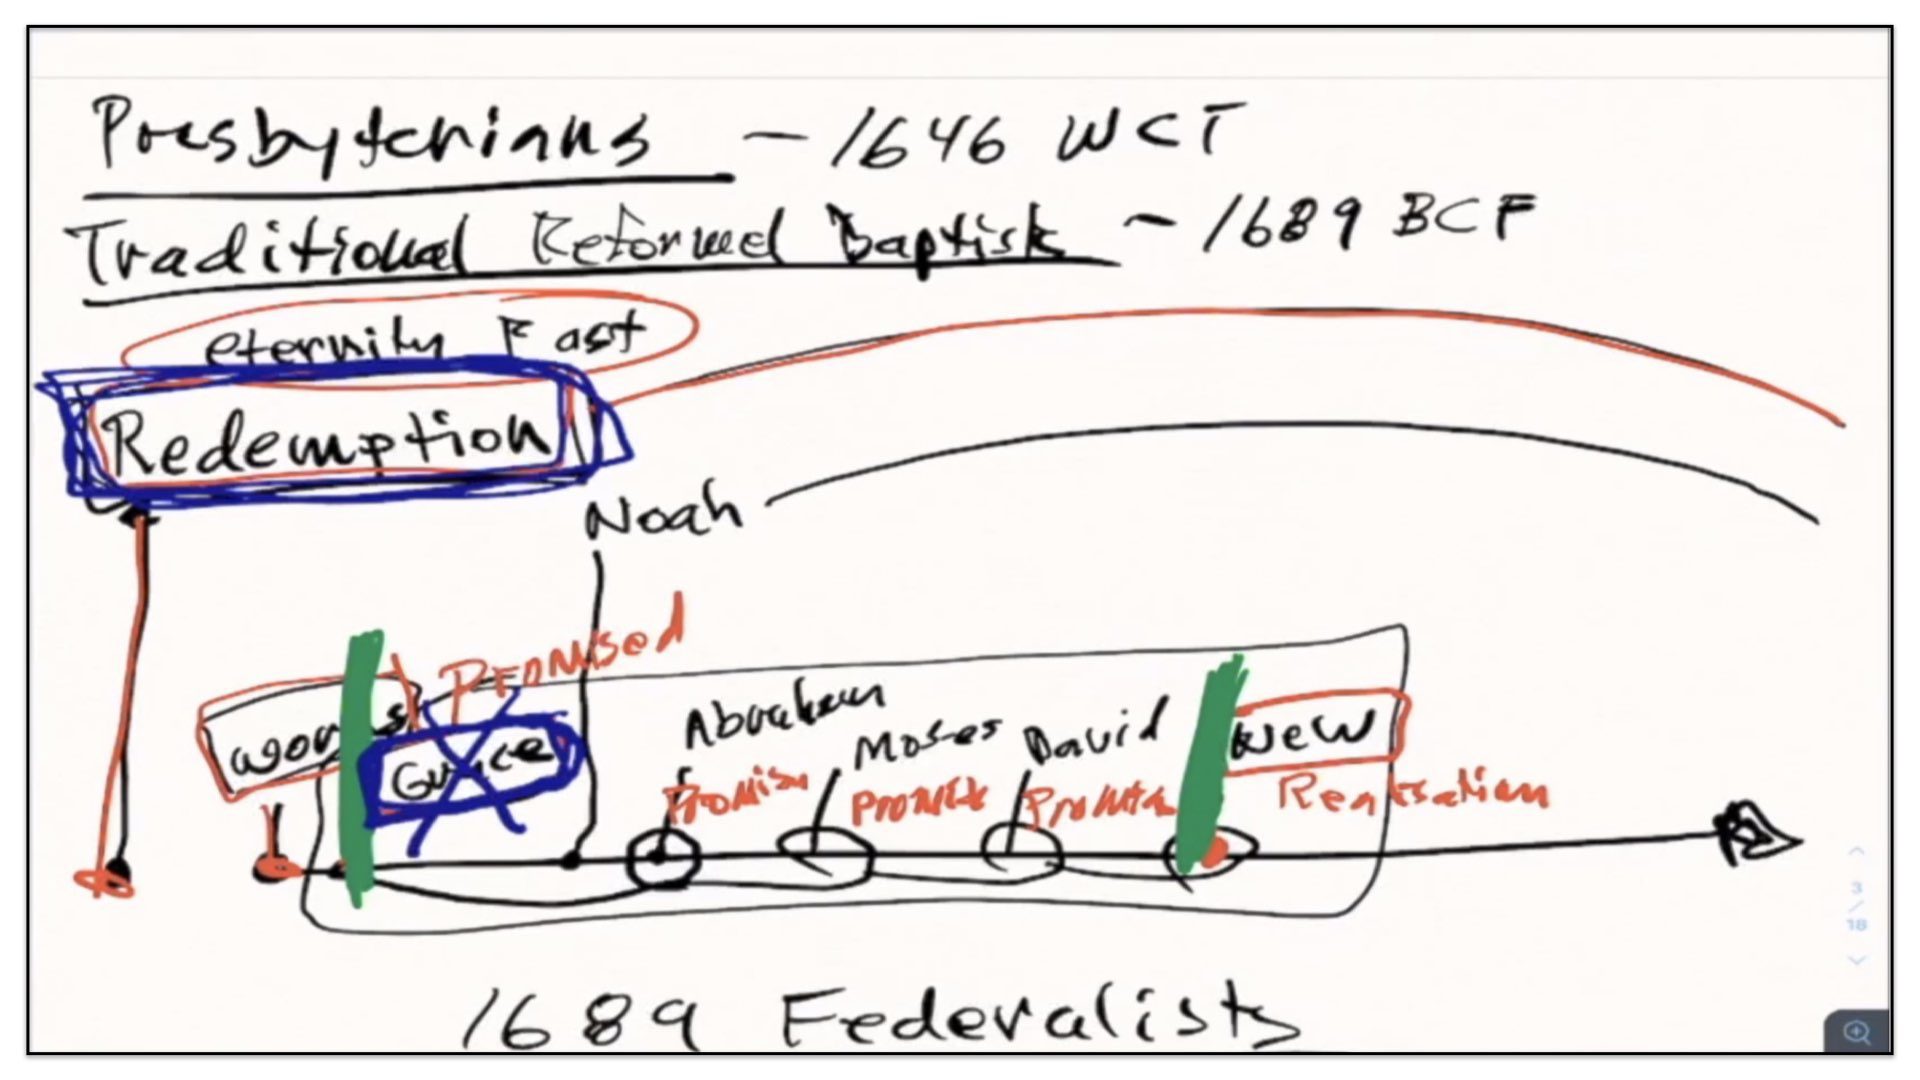 Presbyterians - 1646 WCF
Traditional Reformed Baptists - 1689 BCF
eternity Past
Redemption
Noah
Promised
works
Grace
Abraham
Moses
David
New
Promise
Promise
Promise
Realisation
1689 Federalists
3
/
18